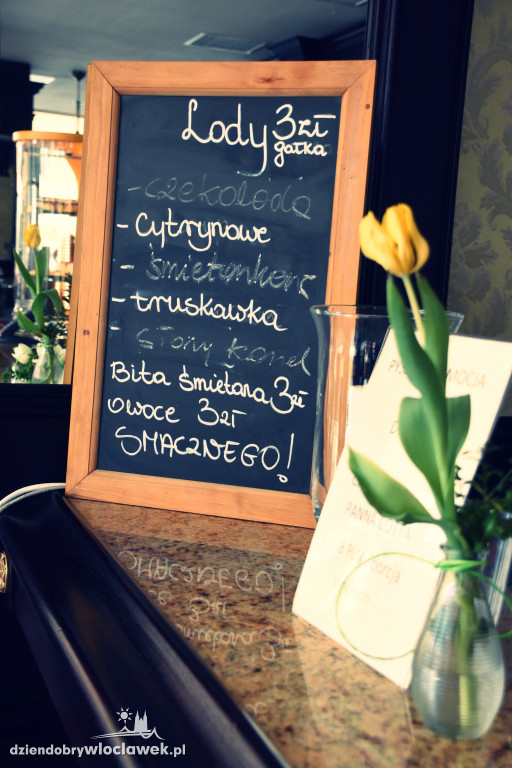 Lody 3zł
gałka
- czekolada
- cytrynowe
- śmietankowe
- truskawka
- słony karmel
Bita śmietana 3zł
owoce 3zł
SMACZNEGO!
PANNA COTTA
dziendobrywloclawek.pl